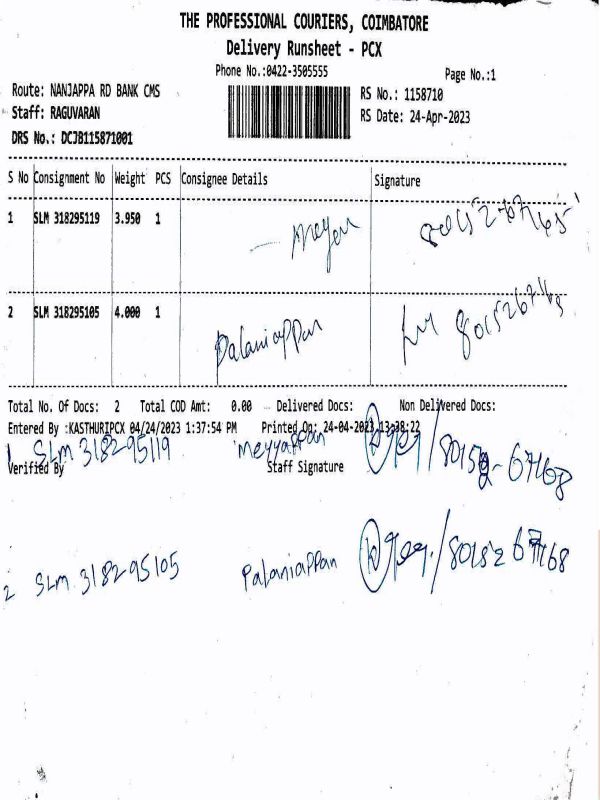 THE PROFESSIONAL COURIERS, COIMBATORE
Delivery Runsheet - PCX
Phone No.:0422-3505555
Page No.:1
Route: NANJAPPA RD BANK CMS
RS No.: 1158710
Staff: RAGUVARAN
RS Date: 24-Apr-2023
DRS No.: DCJB115871001
S No Consignment No Weight PCS Consignee Details Signature
1 SLM 318295119 3.950 1
2 SLM 318295105 4.000 1 Palaniappan
Total No. Of Docs: 2 Total COD Amt: 0.00 Delivered Docs: Non Delivered Docs:
Entered By :KASTHURIPCX 04/24/2023 1:37:54 PM Printed On: 24-04-2023 13:38:22
1 SLM 318295119 Meyyappan
Verified By Staff Signature
2 SLM 318295105 Palaniappan 8015267768